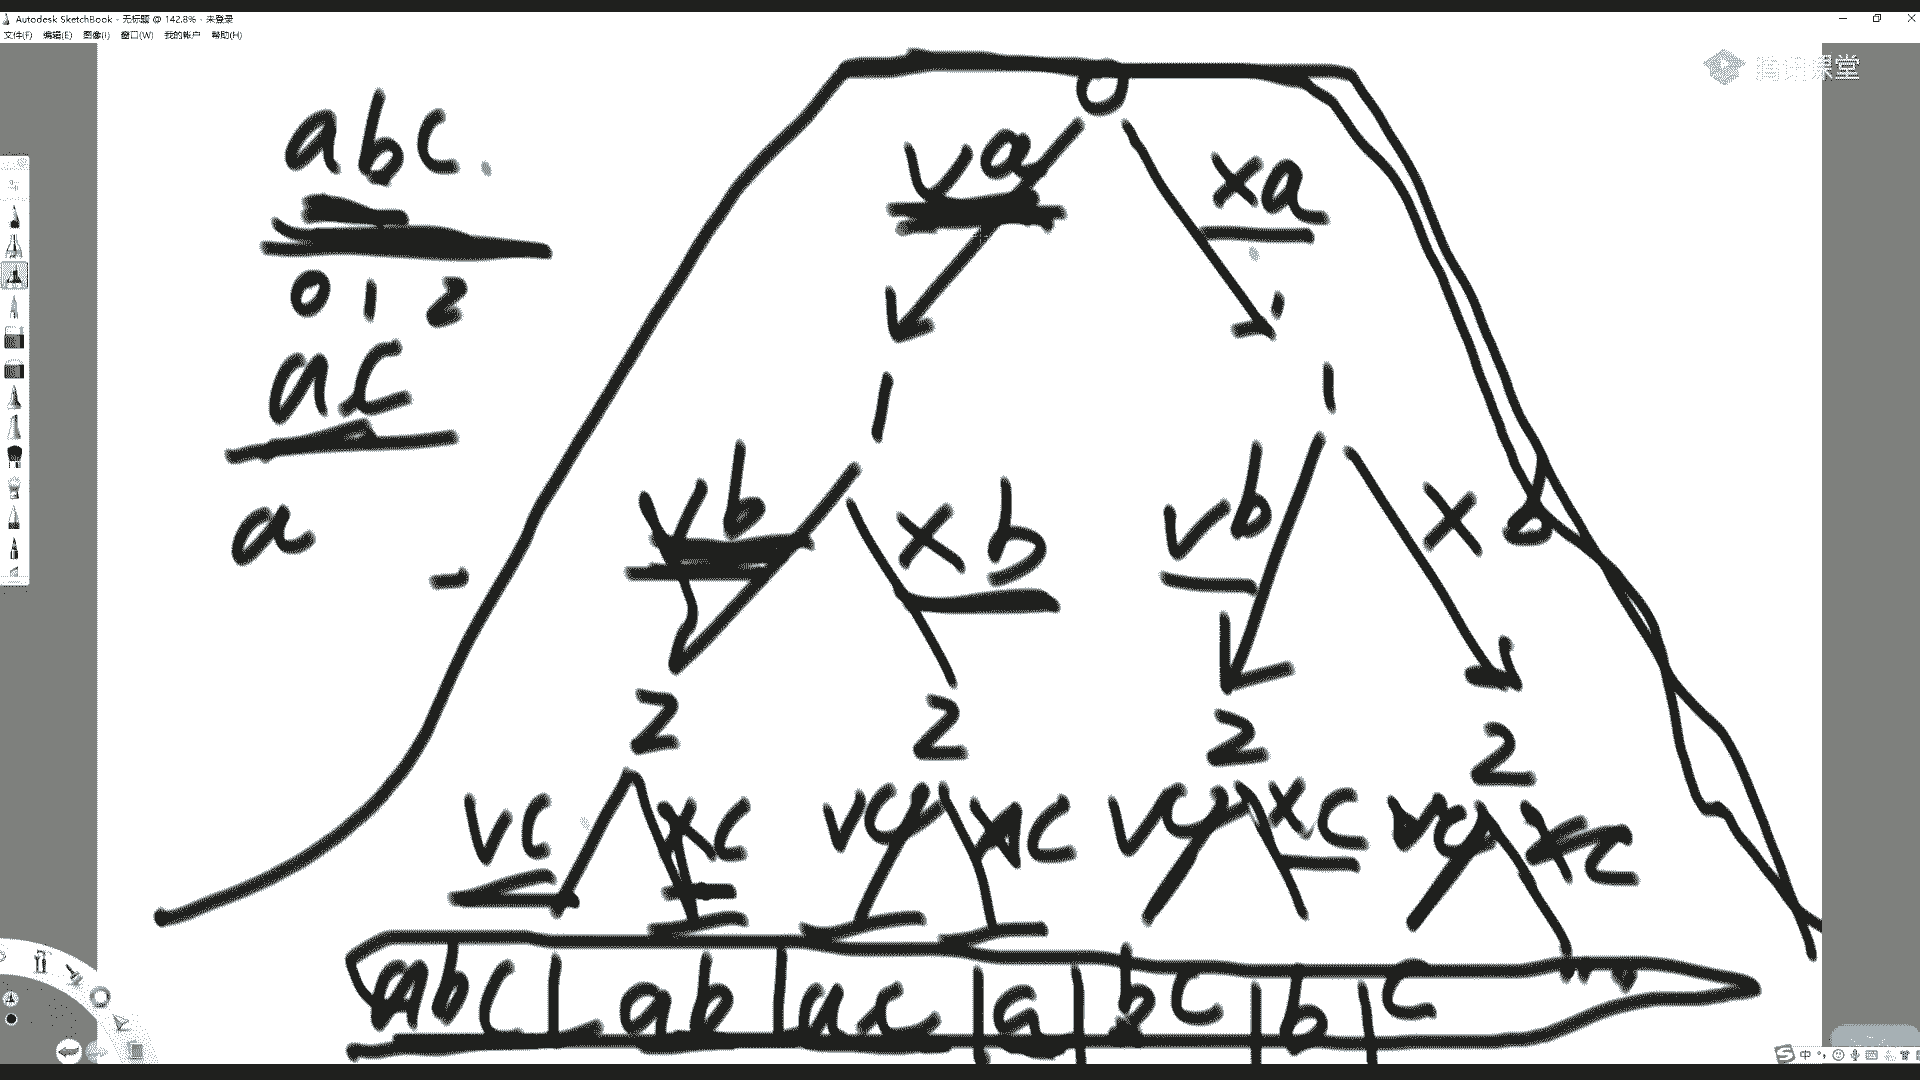 Autodesk SketchBook - 无标题 @ 142.8% - 未登录
文件(F) 编辑(E) 图像(I) 窗口(W) 我的帐户 帮助(H)
腾讯课堂
abc
0 1 2
ac
a
0
√a xa
1 1
√b xb √b x b
2 2 2 2
√c xc √c xc √c xc √c xc
abc ab ac a bc b c ""
中